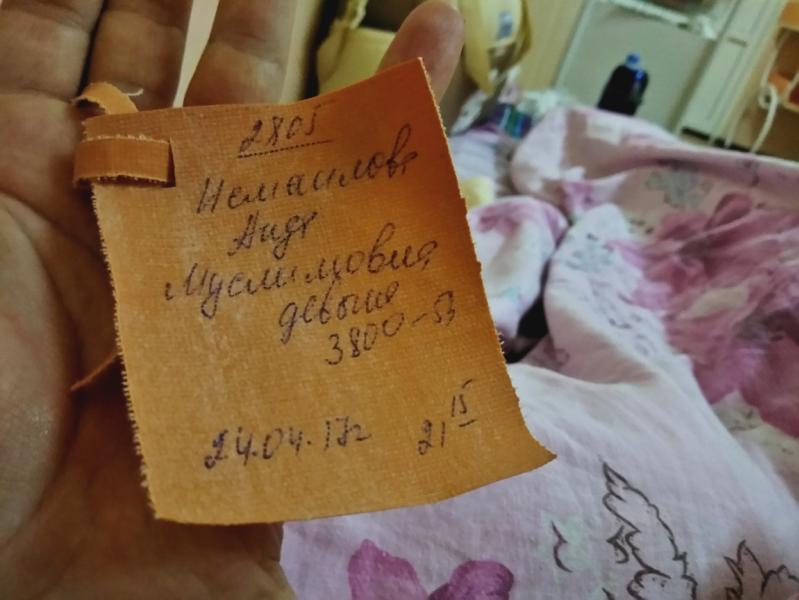 2805
Исмаилова
Аида
Муслимовна
девочка
3800-53
24.04.17г 21 15